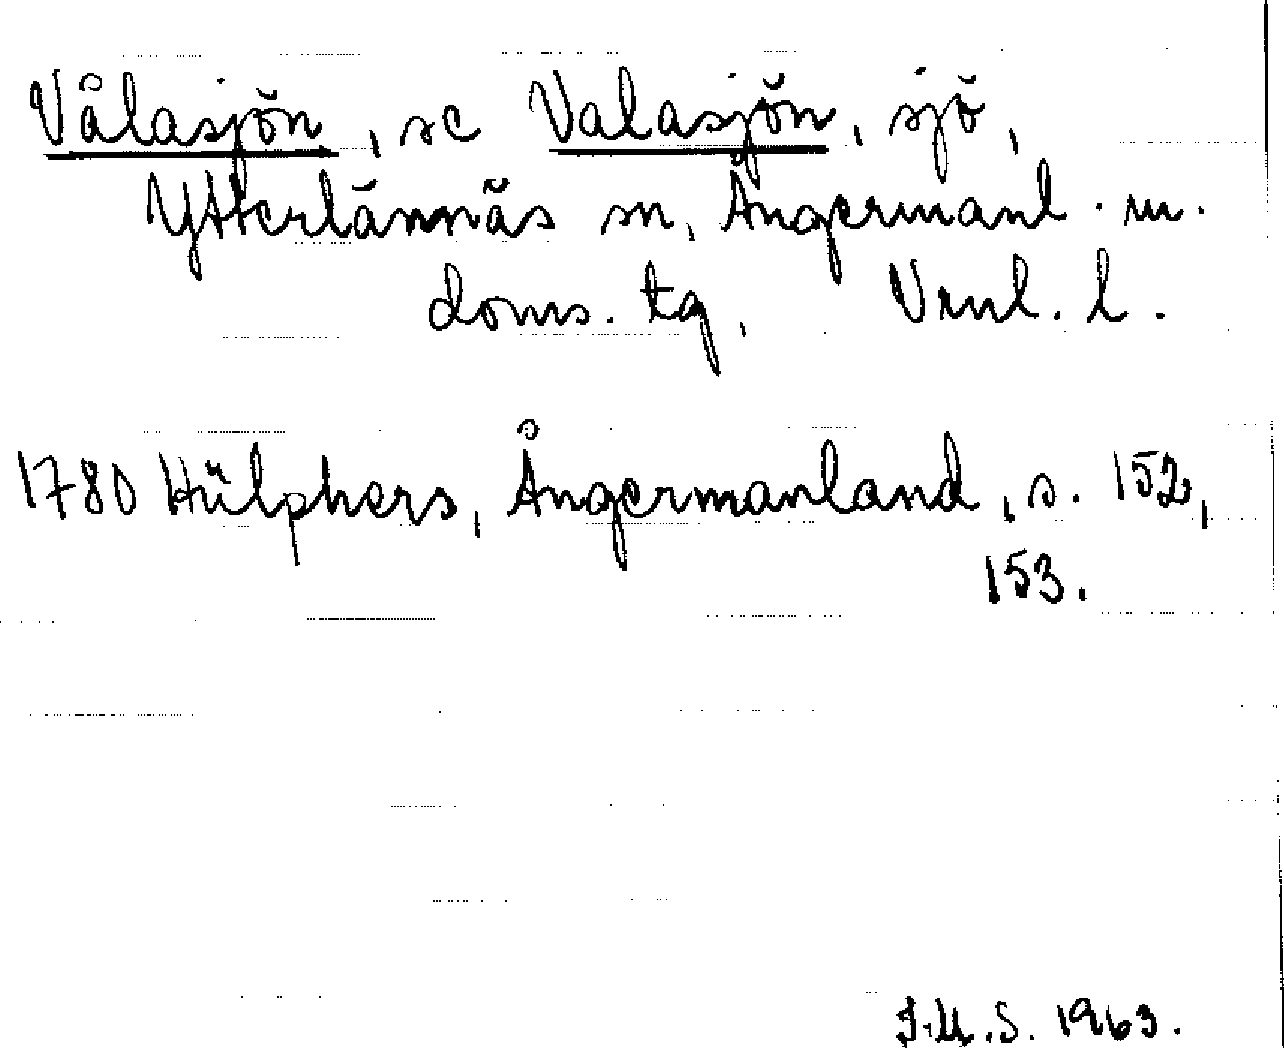 Vålasjön, se Valasjön, sjö,
Ytterlännäs sn, Ångermanl. m.
doms. tg, Vrnl. l.
1780 Hülphers, Ångermanland, s. 152,
153.
I.M.S. 1963.